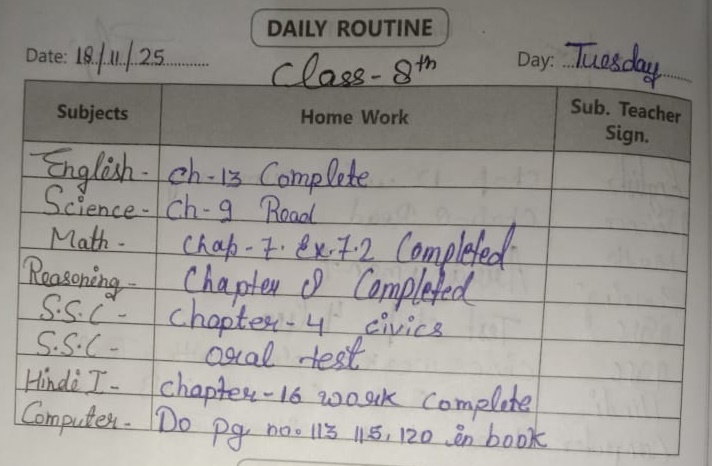 DAILY ROUTINE
Date: 18/11/25 Class-8th Day: Tuesday
Subjects Home Work Sub. Teacher Sign.
English - ch-13 Complete
Science - Ch-9 Read
Math - Chap-7. Ex.7.2 Completed
Reasoning - Chapter 8 Completed
S.S.C - Chapter-4 civics
S.S.C - oral test
Hindi I - chapter-16 work complete
Computer - Do pg no. 113 115, 120 in book